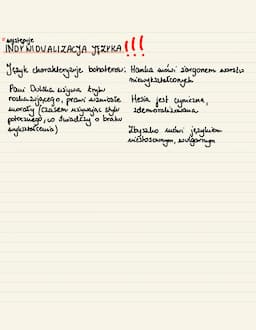 występuje
INDYWIDUALIZACJA JĘZYKA!!!
Język charakteryzuje bohaterów:
Pani Dulska używa trybu
rozkazującego, prawi wzniosłe
morały (czasem używając stylu
potocznego, co świadczy o braku
wykształcenia)
Hanka mówi żargonem warstw
niewykształconych
Hesia jest cyniczna,
zdemoralizowana
Zbyszko mówi językiem
niestosownym, wulgarnym